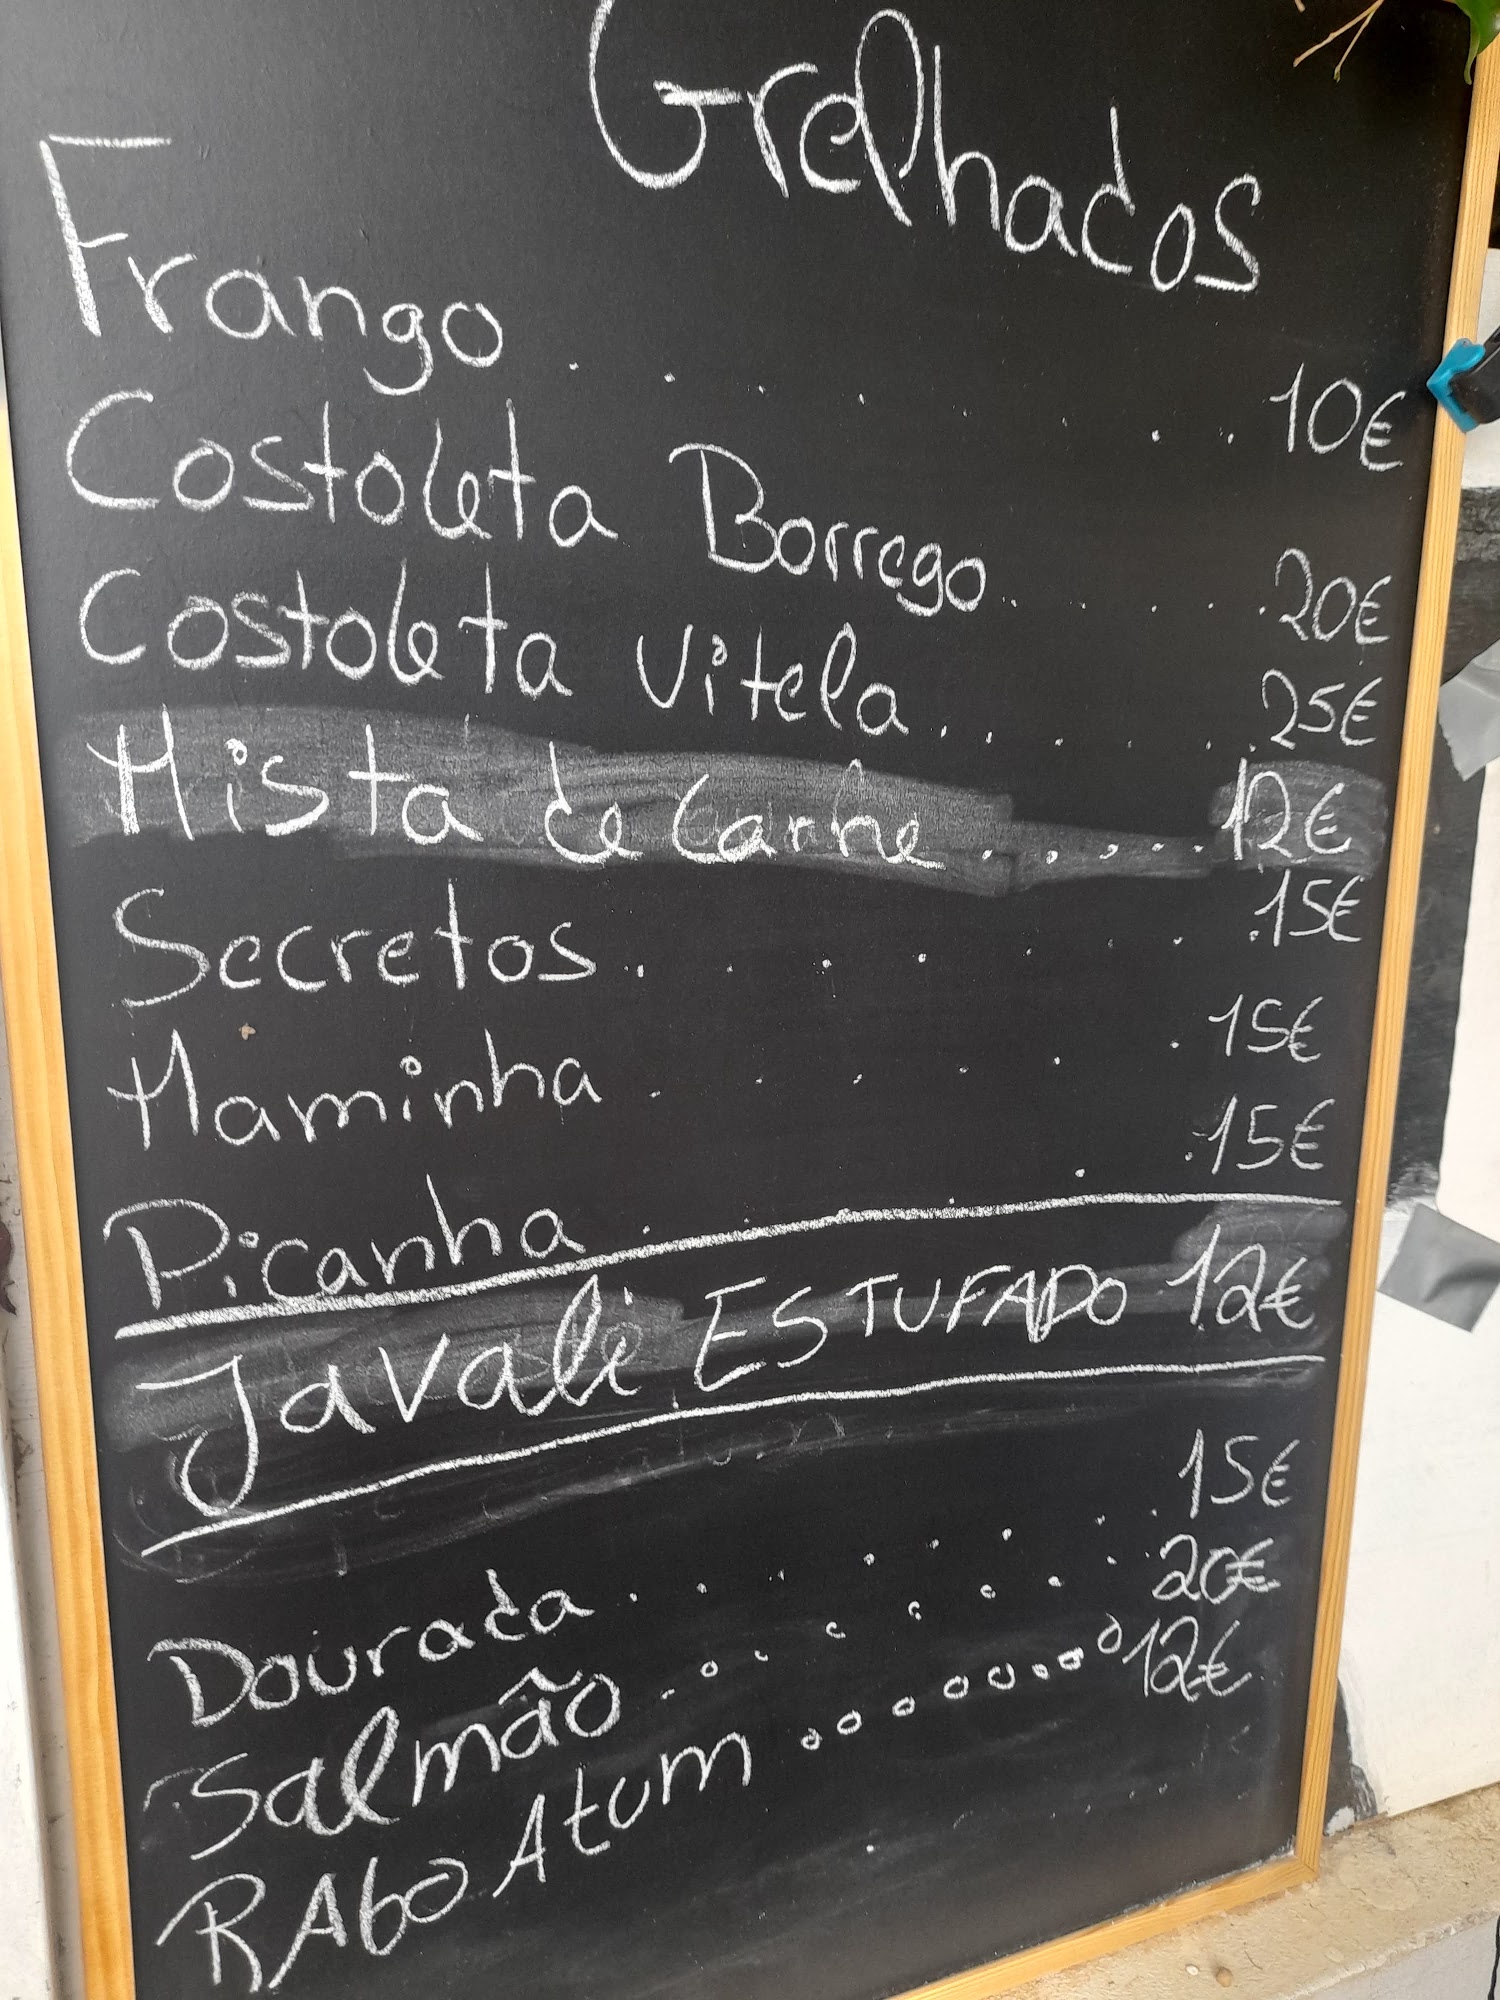 Grelhados
Frango . . . . . . . 10€
Costoleta Borrego . . . . . . 20€
Costoleta Vitela . . . . . . . 25€
Mista de Carne . . . . . . 12€
Secretos . . . . . . . 15€
Maminha . . . . . . 15€
Picanha . . . . . . 15€
Javali ESTUFADO 12€
Dourada . . . . . . . . 15€
Salmão . . . . . . . . 20€
RAbo Atum . . . . . . . . 12€